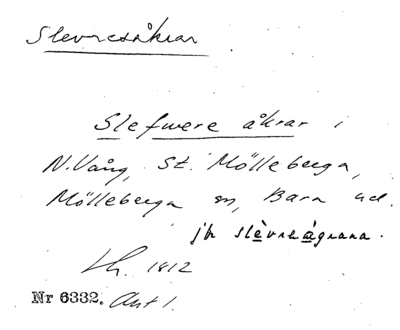 Slevresåkrar
Slefwere åkrar i
N. Vång, St. Mölleberga,
Mölleberga sn, Bara hd.
jfr slèvreàgrana.
Lh. 1812
Nr 6332. Akt 1.